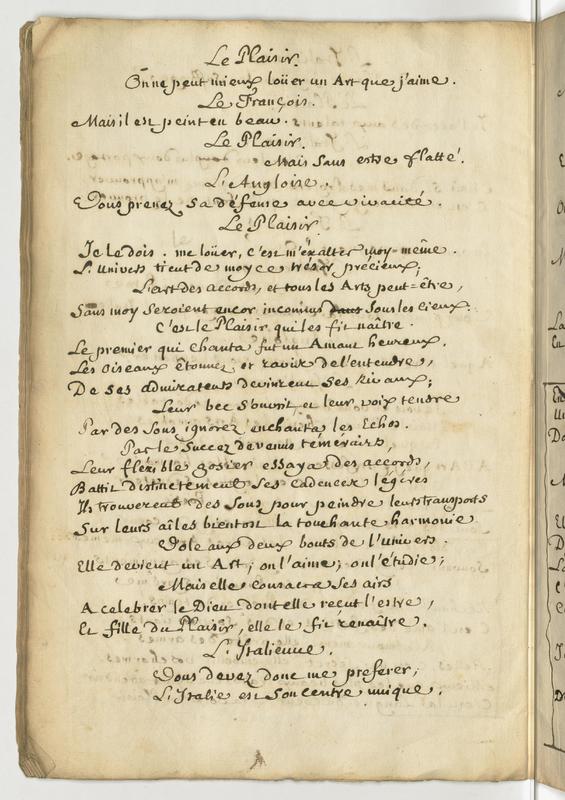 Le Plaisir.
On ne peut mieux loüer un Art que j'aime.
Le François.
Mais il est peint en beau.
Le Plaisir.
Mais sans estre flatté.
L'Angloise.
Vous prenez sa défense avec vivacité.
Le Plaisir.
Je le dois. me loüer, c'est m'éxalter moy-même.
L'univers tient de moy ce trésor précieux;
L'art des accords, et tous les Arts peut=être,
Sans moy seroient encor inconnus sous les cieux.
C'est le Plaisir qui les fit naître.
Le premier qui chanta fut un Amant heureux,
Les oiseaux étonnez et ravis de l'entendre,
De ses admirateurs devinrent ses Rivaux;
Leur bec s'ouvrit, et leur voix tendre
Par des sons ignorez enchanta les Echos.
Par le succez devenus téméraires,
Leur fléxible gosier essaya des accords,
Battit distinctement ses cadences légéres
Ils trouverent des sons pour peindre leurs transports
Sur leurs aîles bientost la touchante harmonie
Vole aux deux bouts de l'univers.
Elle devient un Art; on l'aime; on l'étudie;
Mais elle consacra ses airs
A celebrer le Dieu dont elle recut l'estre,
Et fille du Plaisir, elle le fit renaître.
L'Italienne.
Vous devez donc me preferer;
L'Italie est son centre unique.